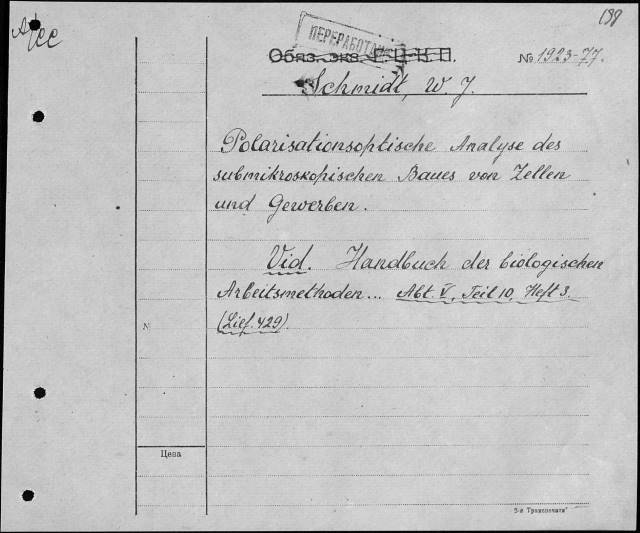 188
ПЕРЕРАБОТАНО
Обяз. экз. Р.Ц.К.П.
№ 1923-77.
Schmidt, W. J.
Polarisationsoptische Analyse des
submikroskopischen Baues von Zellen
und Gewerben.
Vid. Handbuch der biologischen
Arbeitsmethoden... Abt. V, Teil 10, Heft 3.
(Lief. 429).
N
Цена